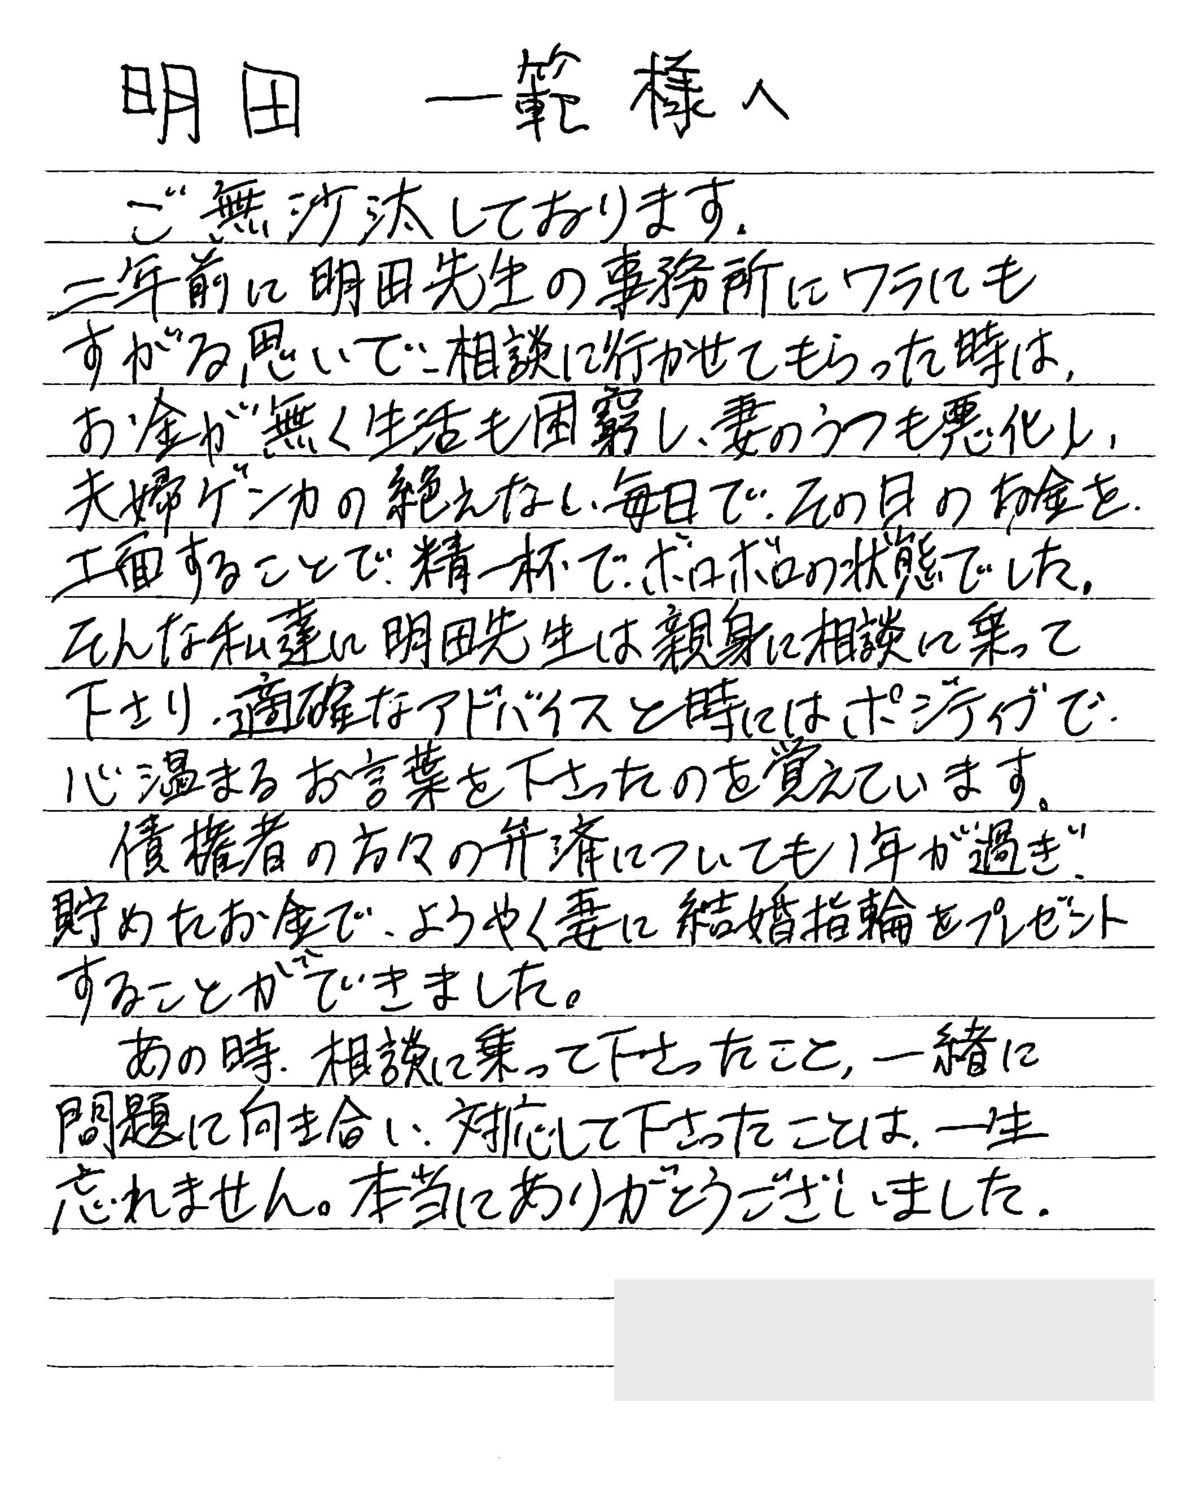 明田 一範様へ
ご無沙汰しております。
二年前に明田先生の事務所にワラにも
すがる思いで、相談に行かせてもらった時は、
お金が無く生活も困窮し、妻のうつも悪化し、
夫婦ゲンカの絶えない毎日で、その日のお金を
工面することで、精一杯で、ボロボロの状態でした。
そんな私達に明田先生は親身に相談に乗って
下さり、適確なアドバイスと時にはポジティブで、
心温まるお言葉を下さったのを覚えています。
債権者の方々の弁済についても1年が過ぎ、
貯めたお金で、ようやく妻に結婚指輪をプレゼント
することができました。
あの時、相談に乗って下さったこと、一緒に
問題に向き合い、対応して下さったことは、一生
忘れません。本当にありがとうございました。